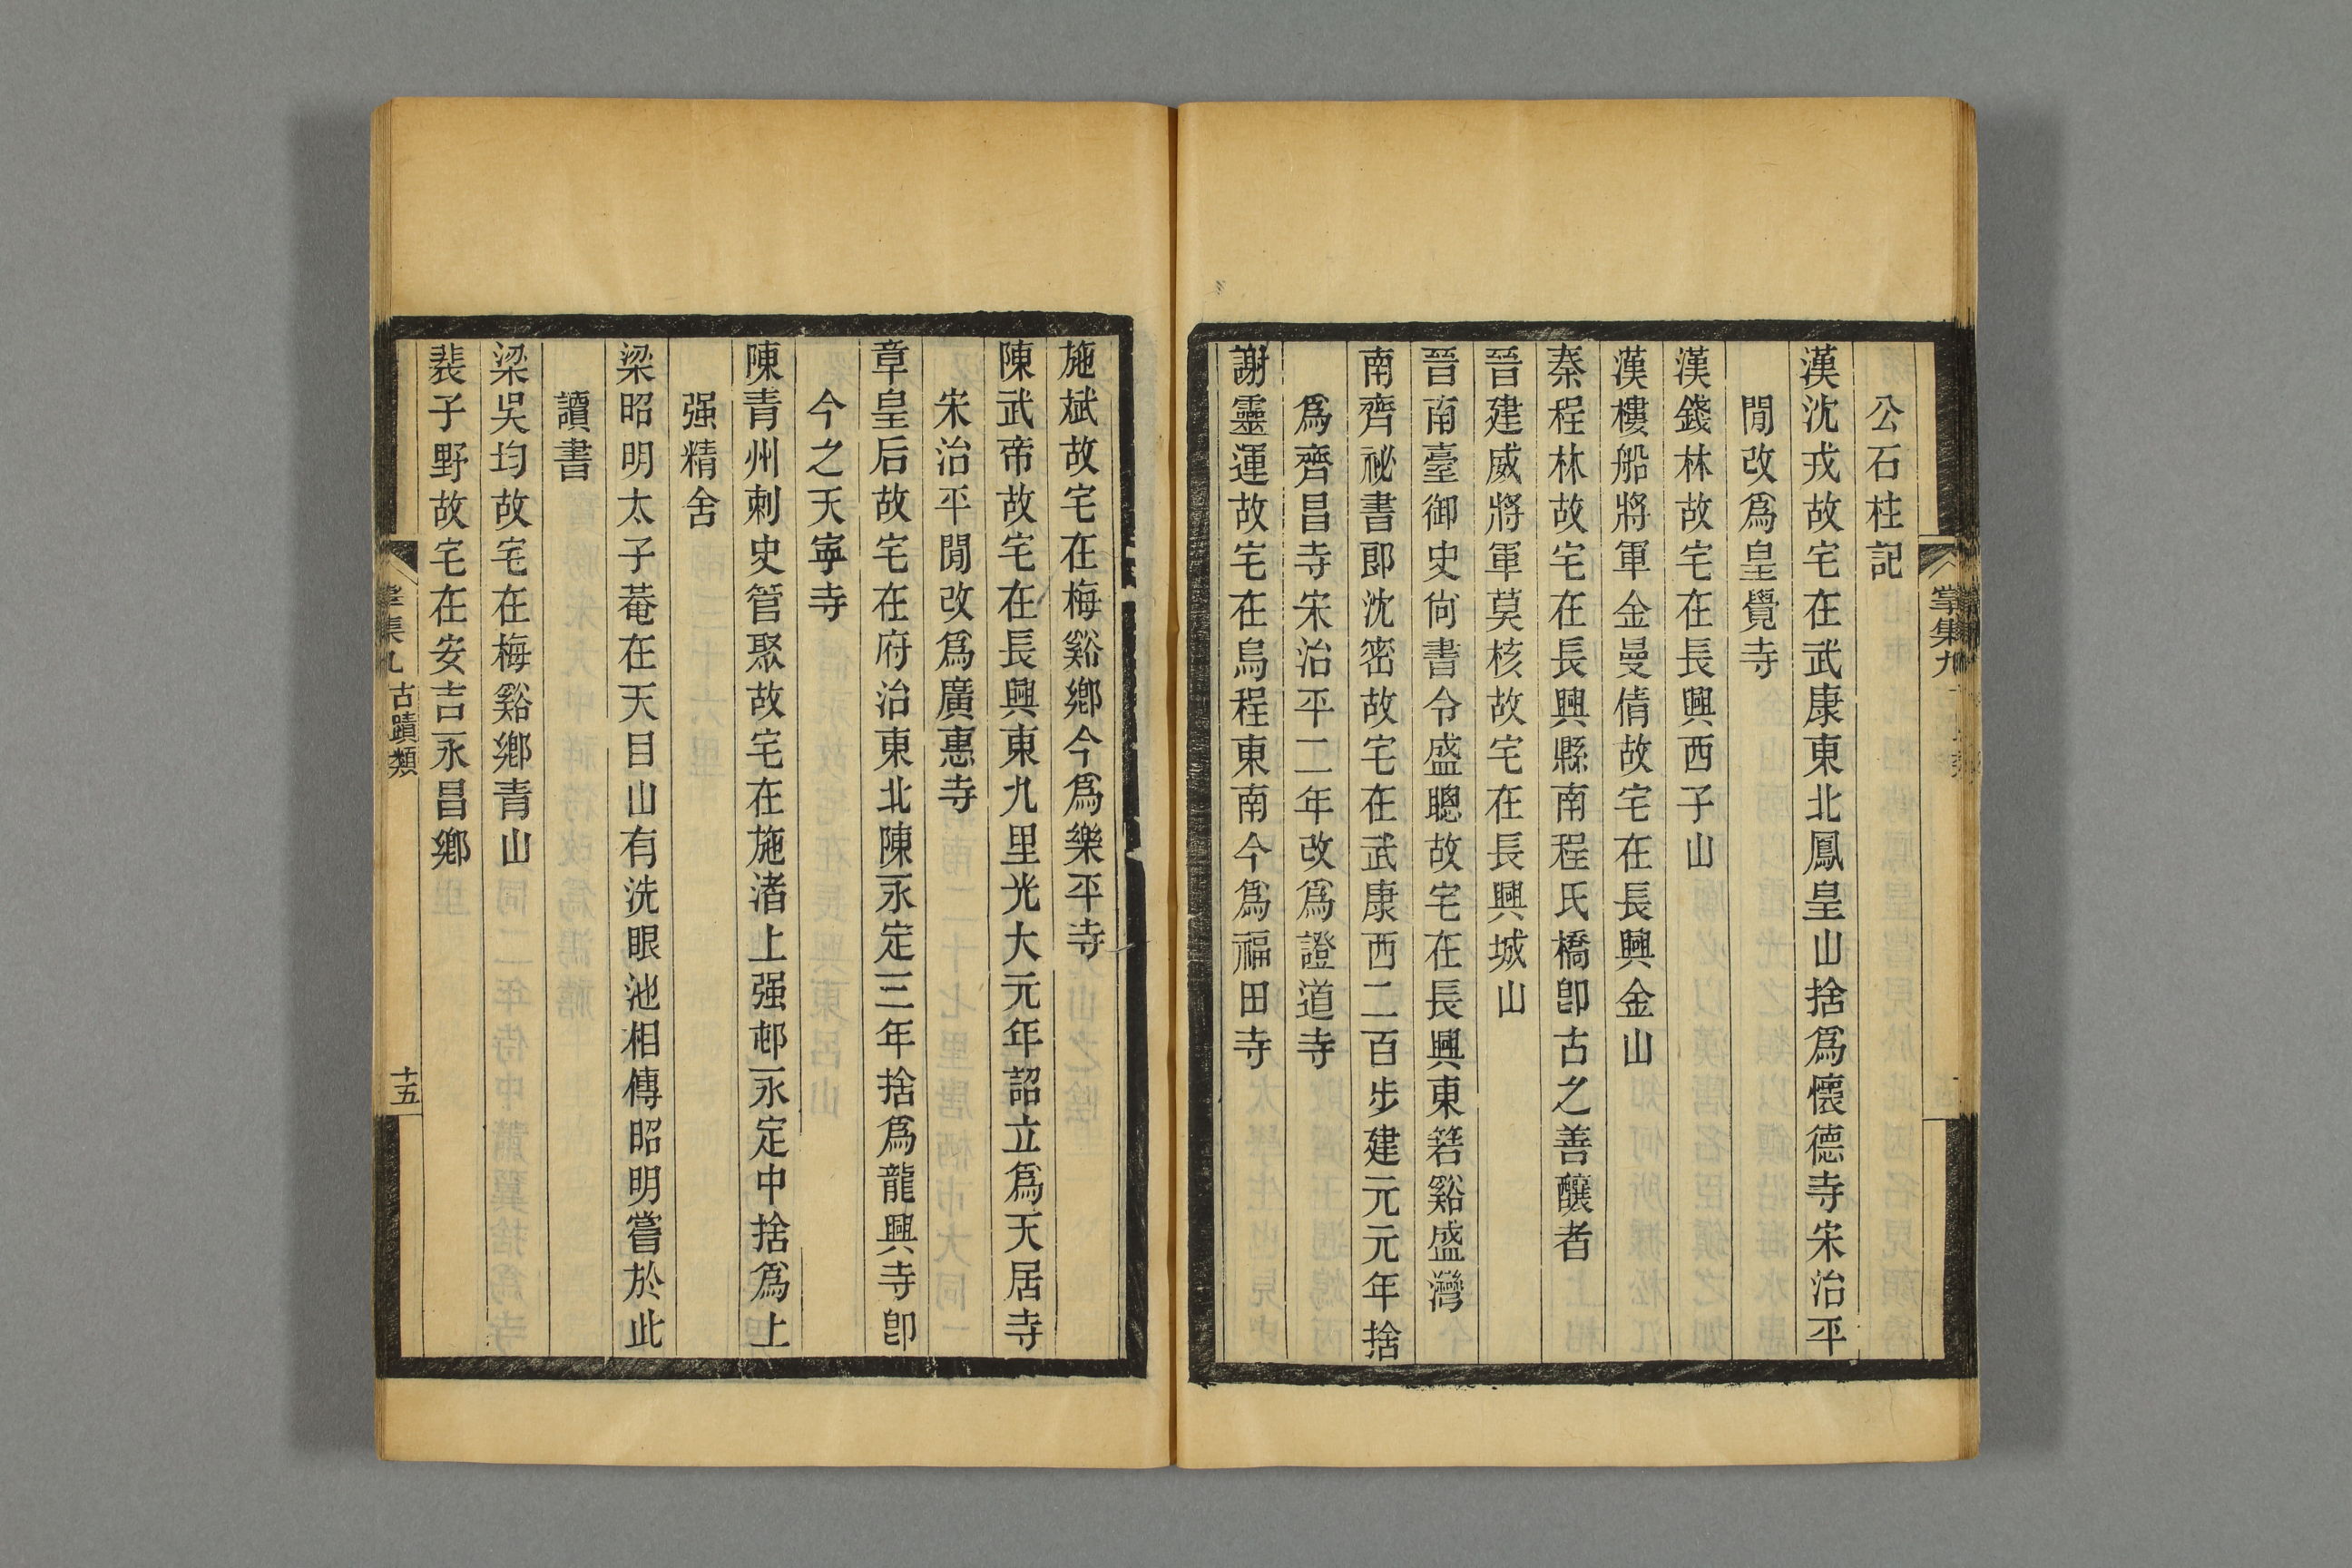 公石柱記
漢沈戎故宅在武康東北鳳皇山捨爲懷德寺宋治平
閒改爲皇覺寺
漢錢林故宅在長興西子山
漢樓船將軍金曼倩故宅在長興金山
秦程林故宅在長興縣南程氏橋卽古之善釀者
晉建威將軍莫核故宅在長興城山
晉南臺御史尙書令盛聰故宅在長興東箬谿盛灣
南齊祕書郎沈密故宅在武康西二百步建元元年捨
爲齊昌寺宋治平二年改爲證道寺
謝靈運故宅在烏程東南今爲福田寺
掌集九
施斌故宅在梅谿鄉今爲樂平寺
陳武帝故宅在長興東九里光大元年詔立爲天居寺
宋治平閒改爲廣惠寺
章皇后故宅在府治東北陳永定三年捨爲龍興寺卽
今之天寧寺
陳青州刺史管聚故宅在施渚上强邨永定中捨爲上
强精舍
梁昭明太子菴在天目山有洗眼池相傳昭明嘗於此
讀書
梁吳均故宅在梅谿鄉青山
裴子野故宅在安吉永昌鄉
掌集九 古蹟類 十五